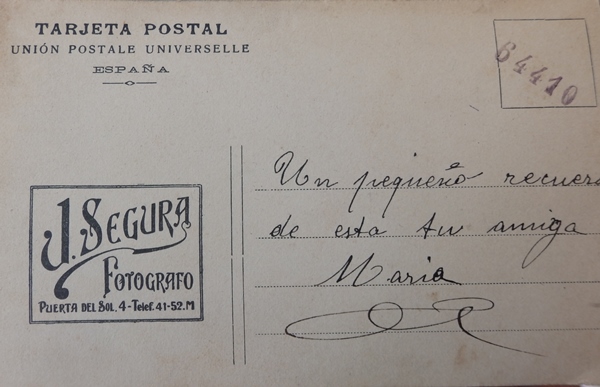 TARJETA POSTAL
UNIÓN POSTALE UNIVERSELLE
ESPAÑA
64410
J. SEGURA
FOTOGRAFO
PUERTA DEL SOL, 4-Telef. 41-52. M
Un pequeño recuer
de esta tu amiga
Maria